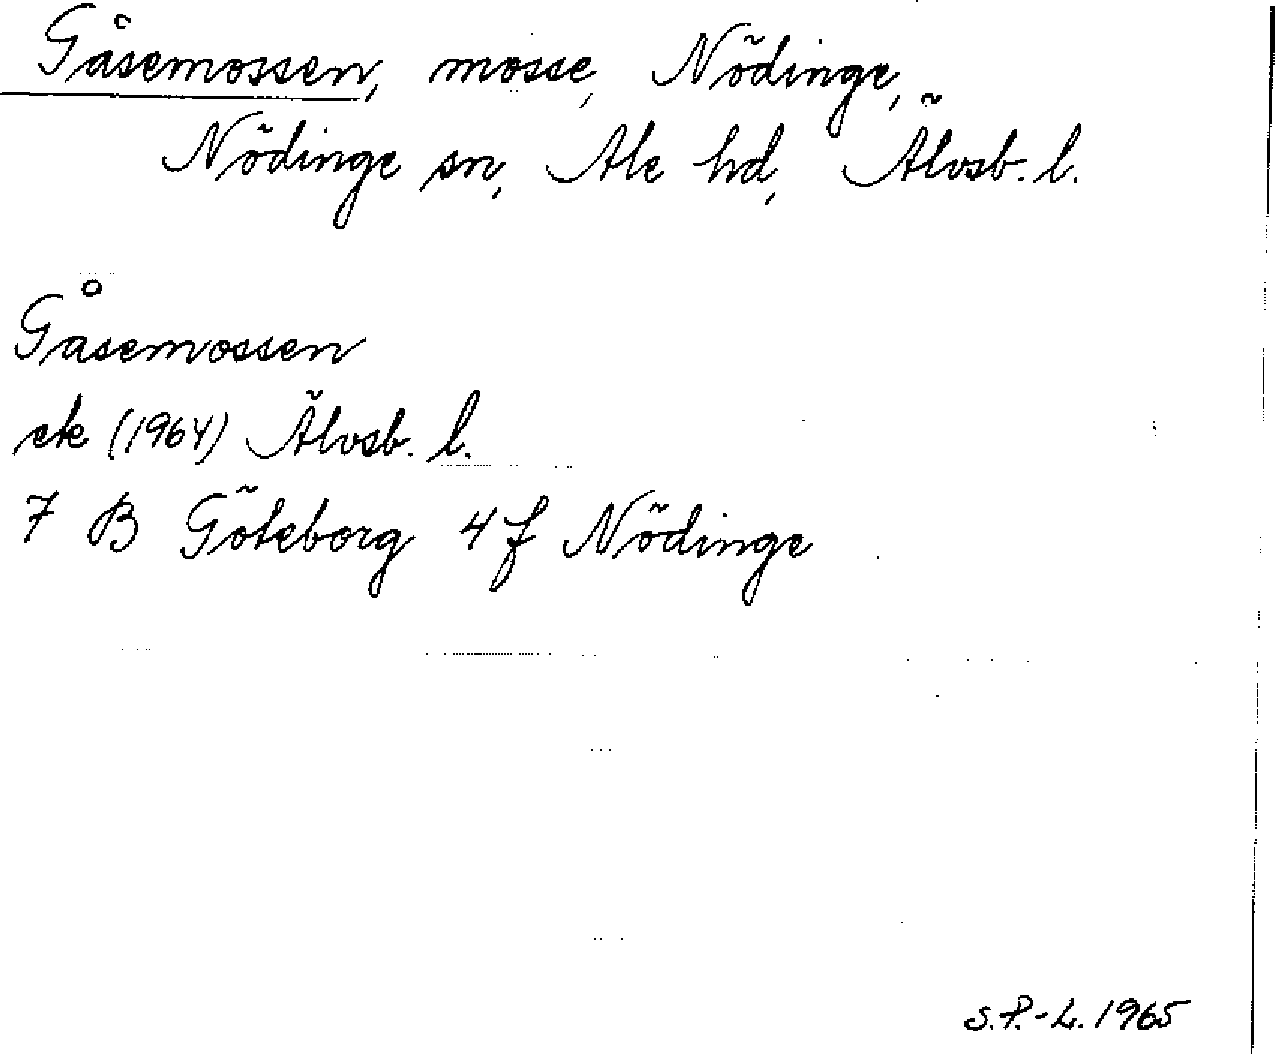 Gåsemossen, mosse, Nödinge,
Nödinge sn, Ale hd, Älvsb. l.
Gåsemossen
ek (1964) Älvsb. l.
7 B Göteborg 4 f Nödinge
S.P.-L. 1965